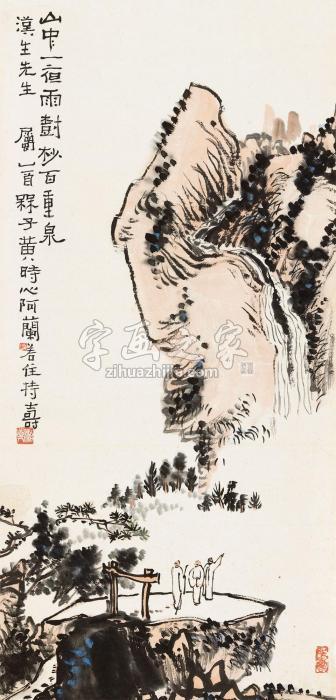 山中一夜雨樹杪百重泉
漢生先生 屬 槑子黃時心阿蘭若住持壽
字画之家
zihuazhijia.com